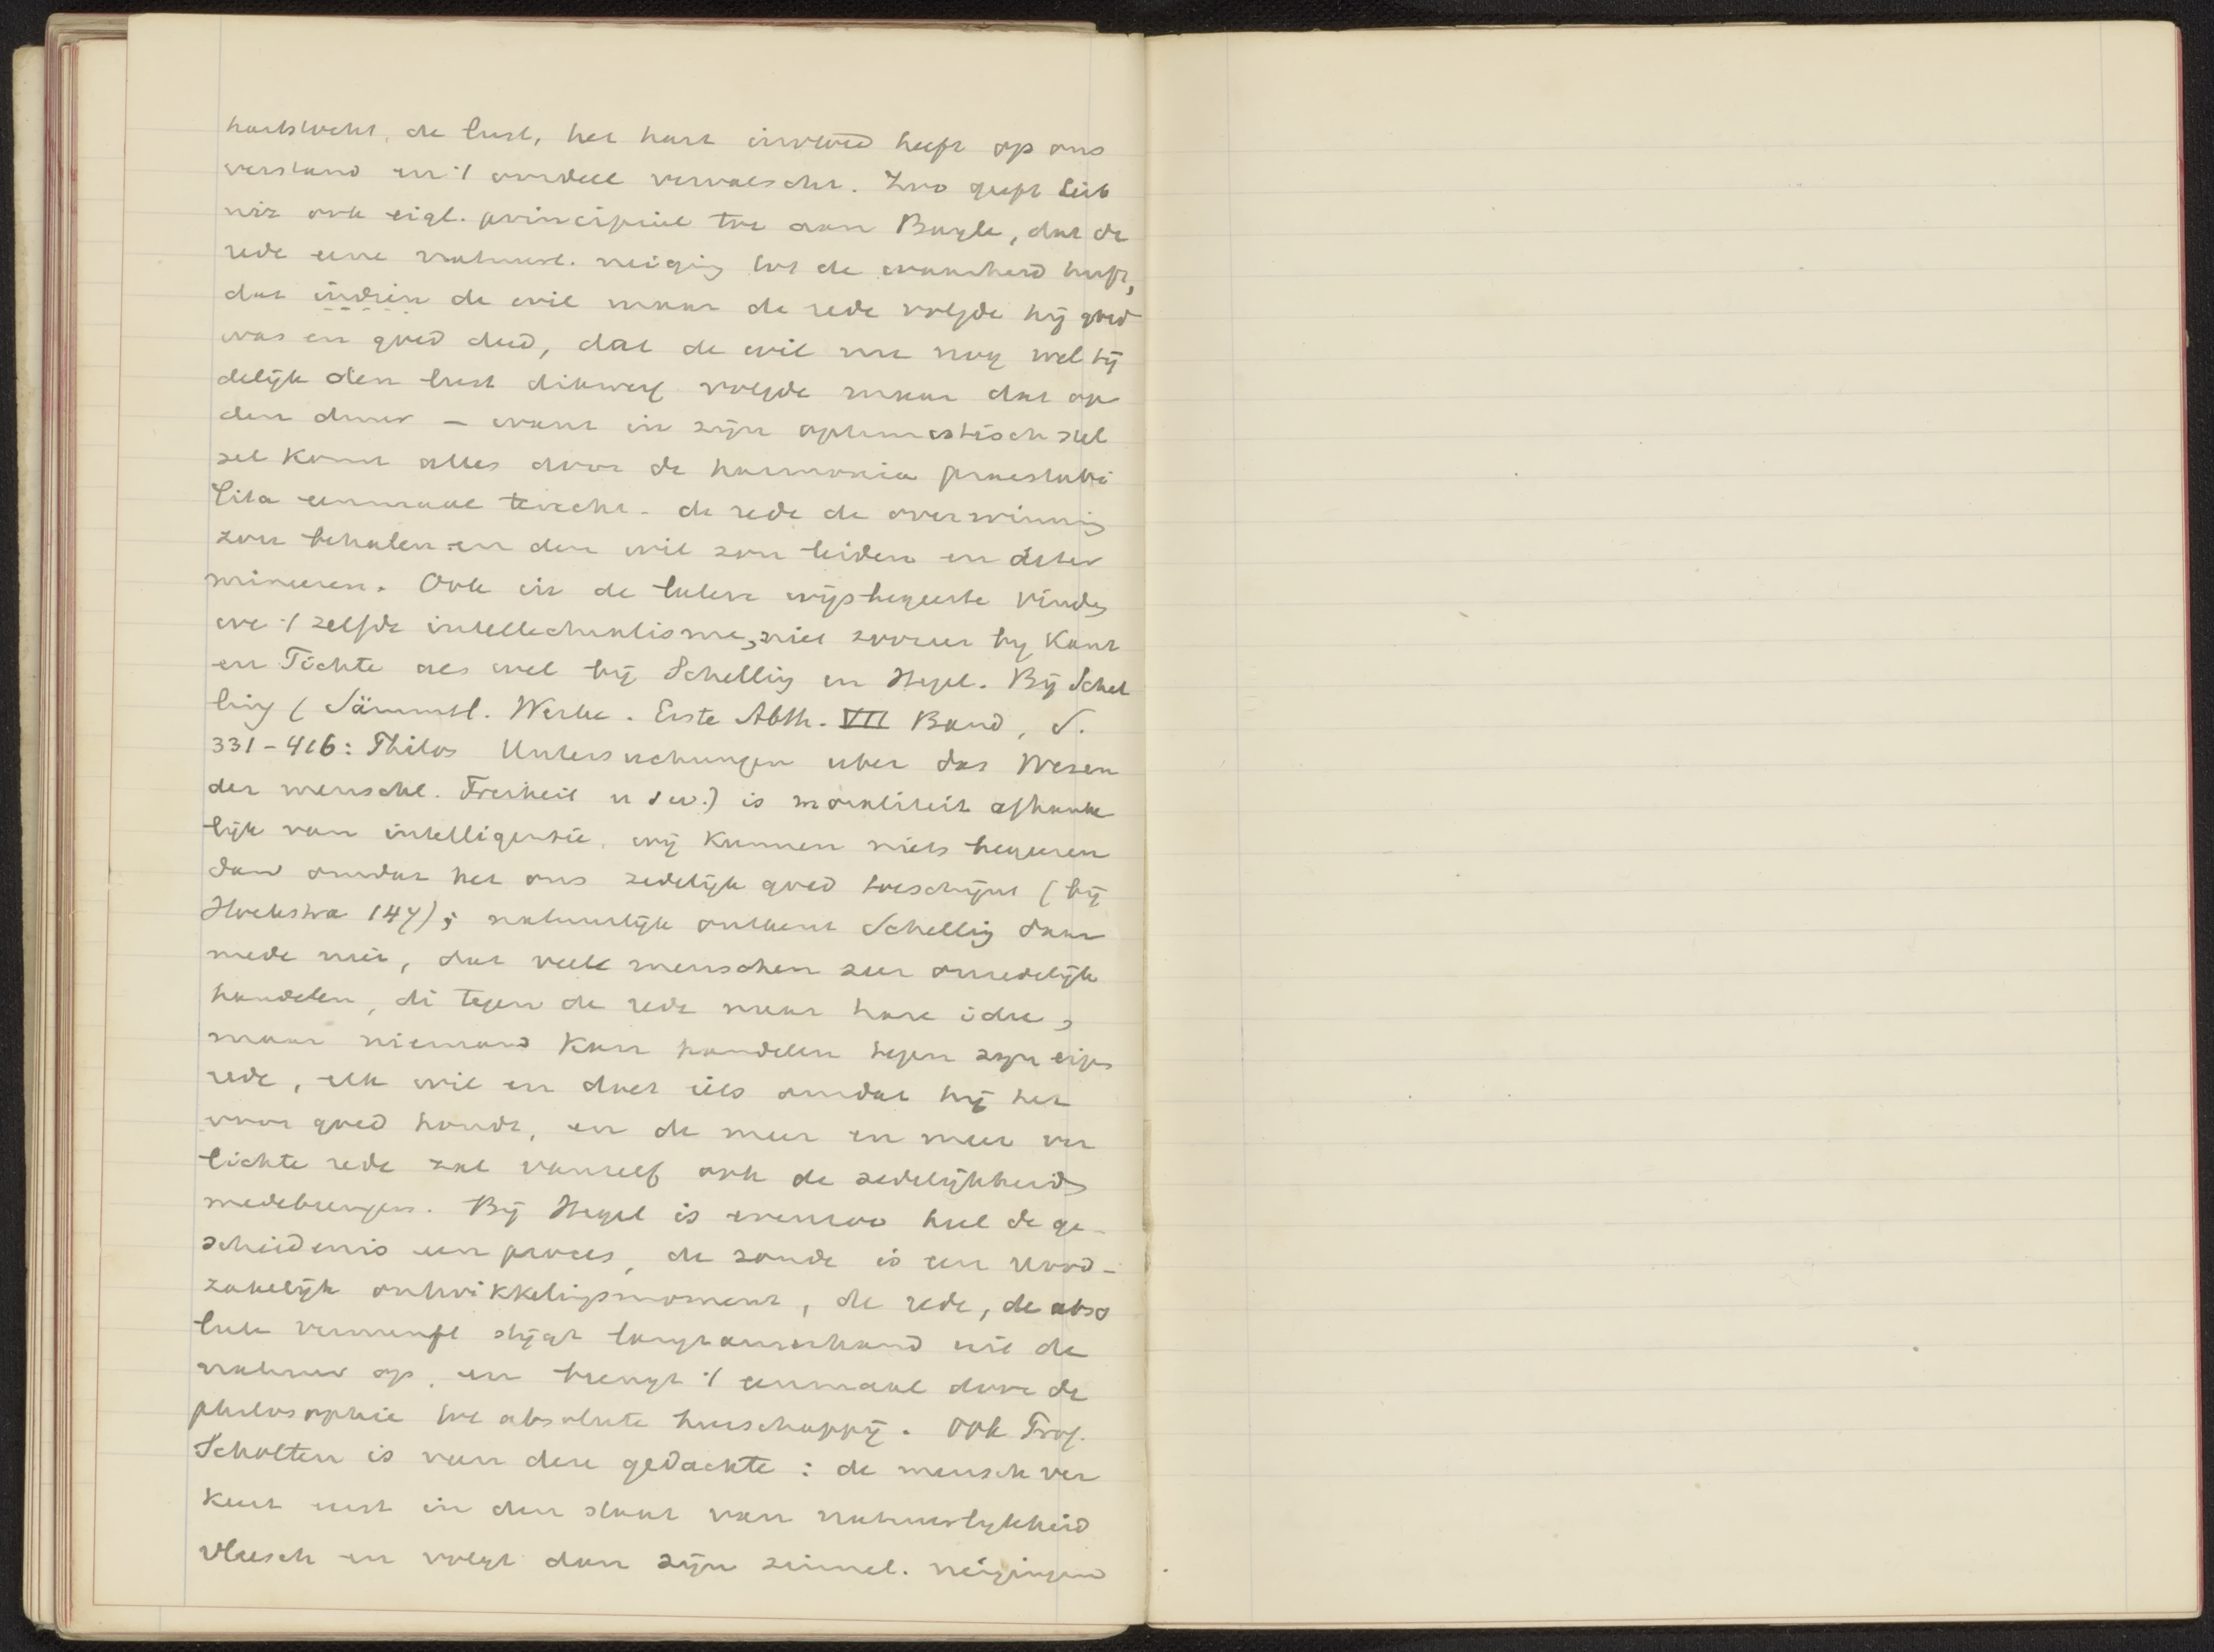 hartstocht, de lust, het hart invloed heeft op ons
verstand en 't oordeel vervalscht. Zoo geeft Leib
niz ook eigl. principieel toe aan Bayle, dat de
rede eene natuurl. neiging tot de waarheid heeft,
dat indien de wil maar de rede volgde hij goed
was en goed deed, dat de wil nu nog wel tij
delijk den lust dikwerf volgde maar dat op
den duur – want in zijn optimistisch stel
sel komt alles door de harmonia praestabi
lita eenmaal terecht – de rede de overwinning
zou behalen en den wil zou leiden en deter
mineeren. Ook in de latere wijsbegeerte vinden
we 't zelfde intellectualisme, niet zoozeer bij Kant
en Fichte als wel bij Schelling en Hegel. Bij Schel
ling (Sämmtl. Werke. Erste Abth. VII Band, S.
331-416: Philos Untersuchungen uber das Wesen
der menschl. Freiheit u s w.) is moraliteit afhanke
lijk van intelligentie, wij kunnen niets begeeren
dan omdat het ons zedelijk goed toeschijnt (bij
Hoekstra 147); natuurlijk ontkent Schelling daar
mede niet, dat veele menschen zeer onzedelijk
handelen, di tegen de rede naar hare idee,
maar niemand kan handelen tegen zijn eigen
rede, elk wil en doet iets omdat hij het
voor goed houdt, en de meer en meer ver
lichte rede zal vanzelf ook de zedelijkheid
medebrengen. Bij Hegel is evenzoo heel de ge-
scheidenis een proces, de zonde is een nood-
zakelijk ontwikkelingsmoment, de rede, de abso
lute vernunft stijgt langzamerhand uit de
natuur op, en brengt 't eenmaal door de
philosophie tot absolute heerschappij. Ook Prof.
Scholten is van deze gedachte: de mensch ver
keert eerst in den staat van natuurlijkheid
vleesch en volgt dan zijn zinnel. neigingen